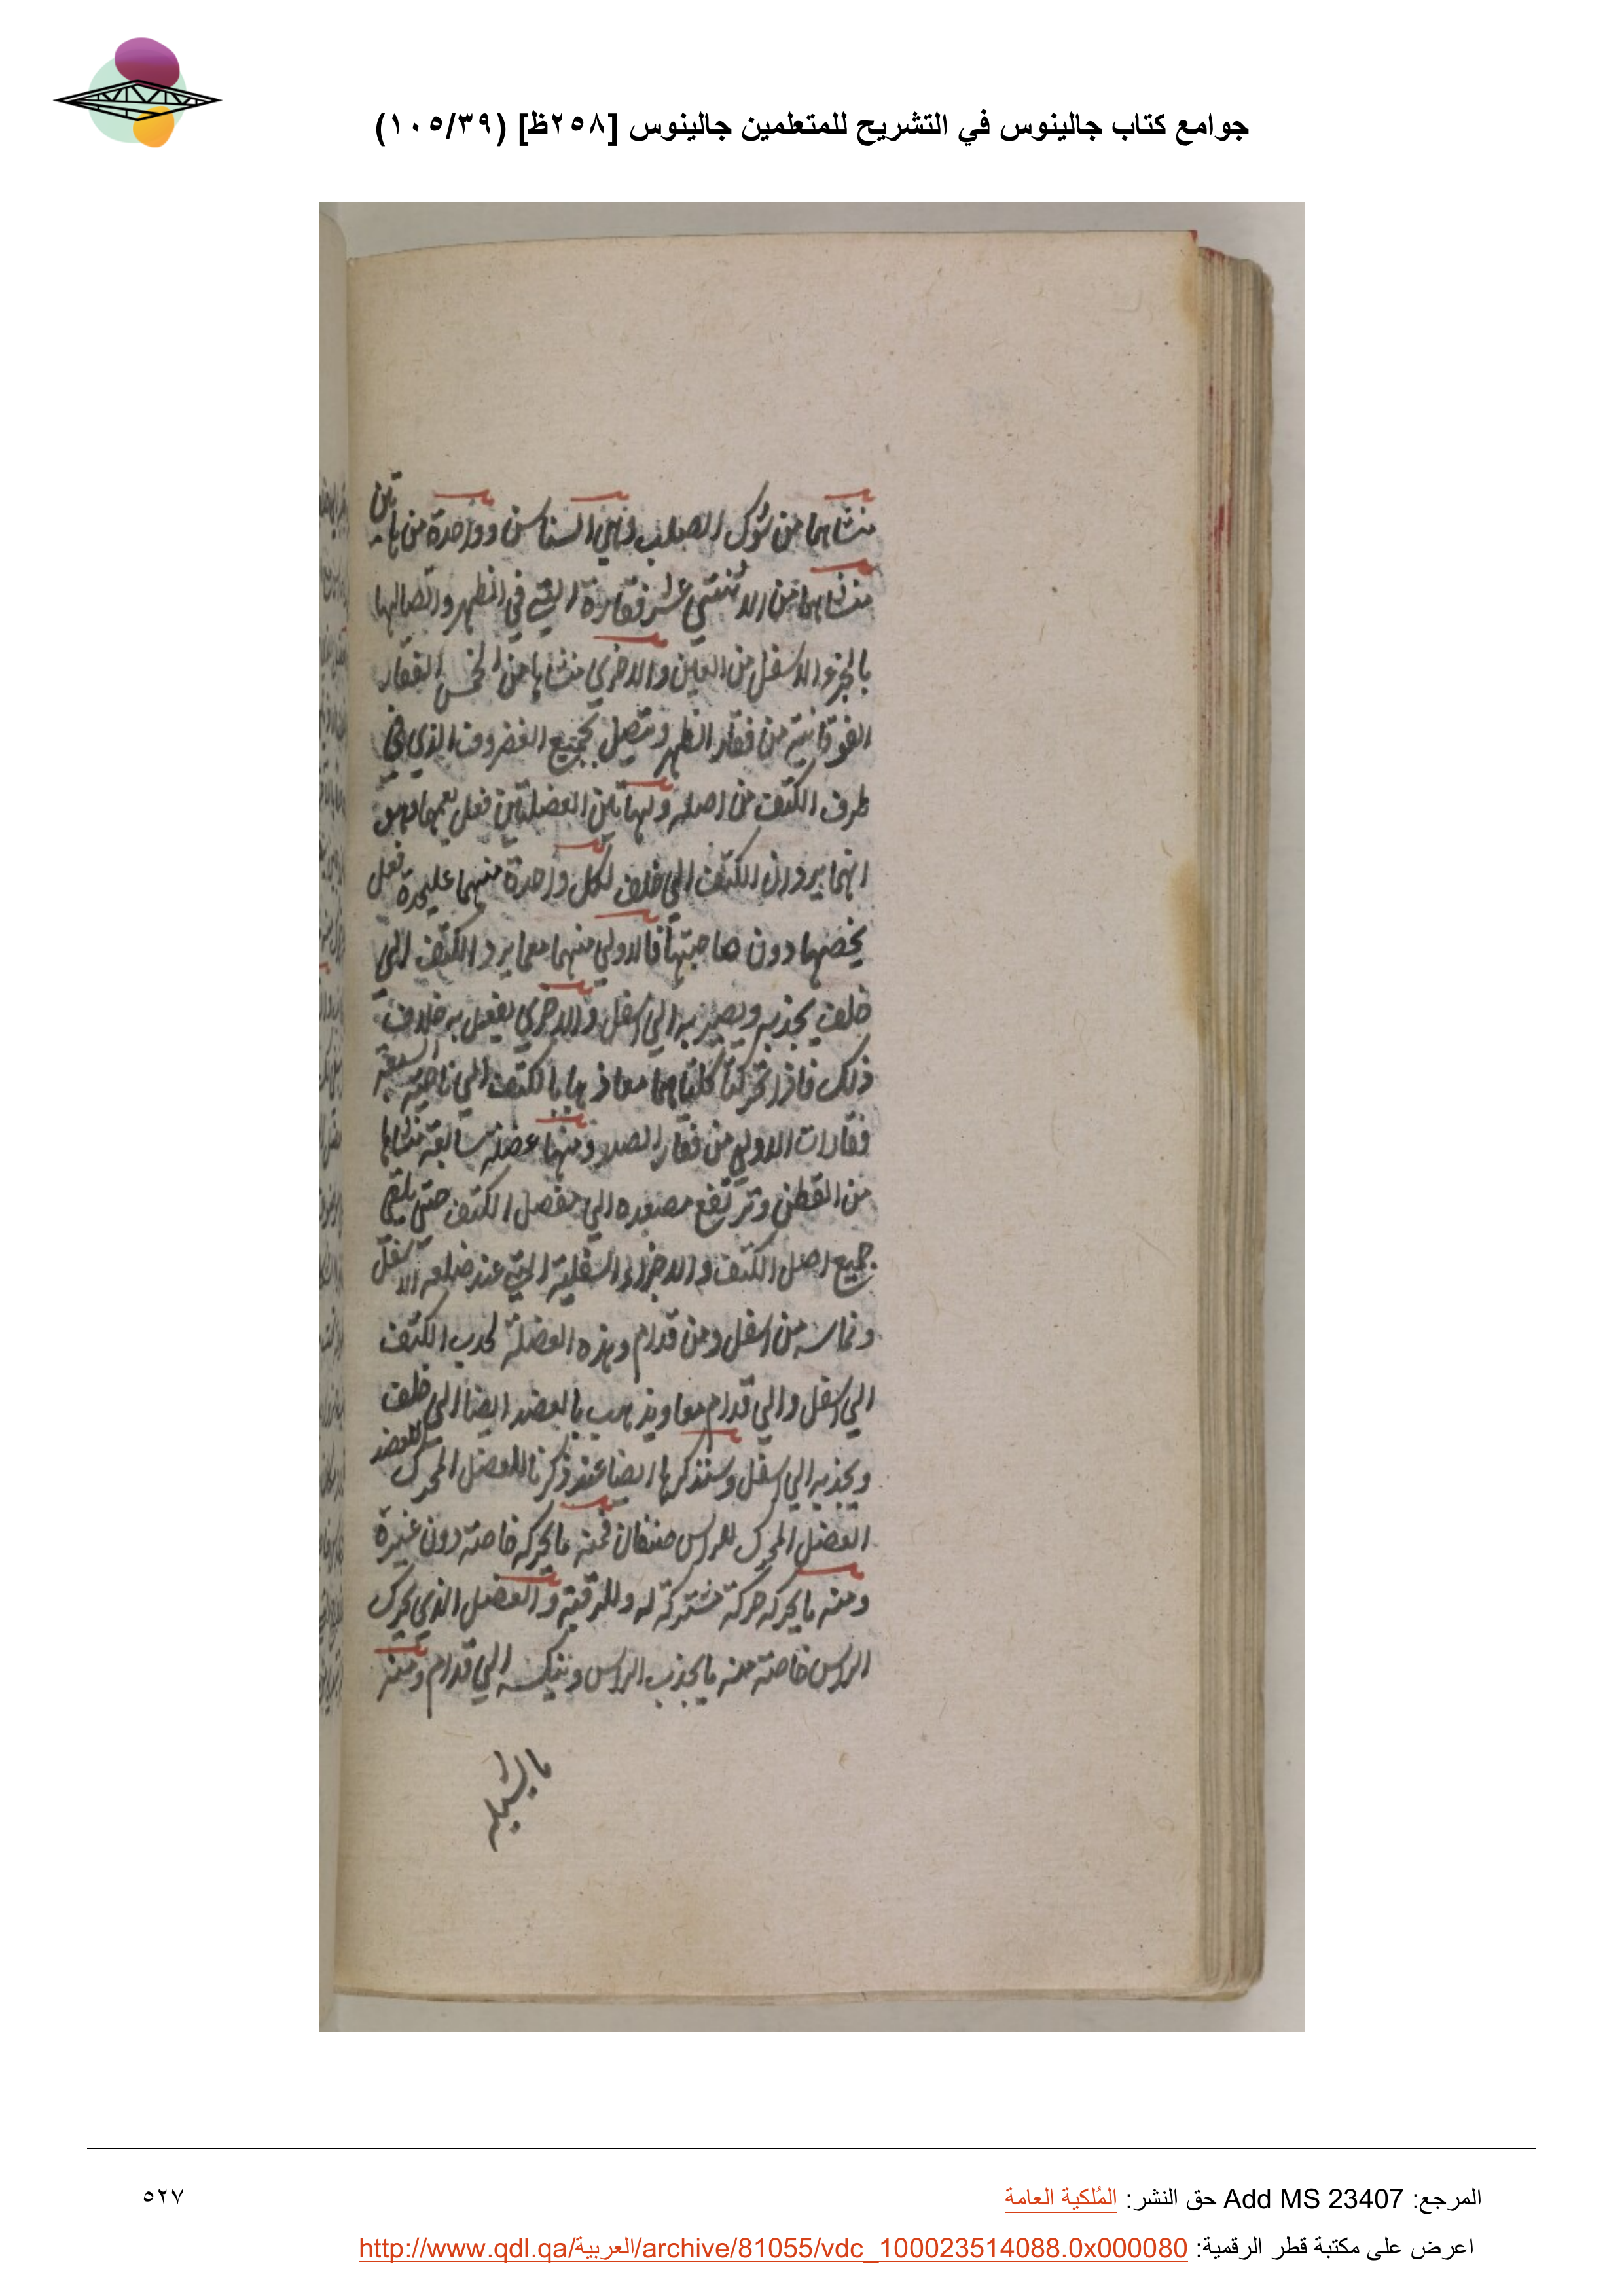 جوامع كتاب جالينوس في التشريح للمتعلمين جالينوس [٢٥٨ظ] (١٠٥/٣٩)
منشاهما من شوك الصلب وهي السناسن وواحدة من هاتين
منشاها من الاثنتي عشر فقارة التي في الظهر واتصالها
بالجزو الاسفل من العين والاخري منشاها من الخمس الفقار
الفوقانية من فقار الظهر وتتصل بجميع الغضروف الذي في
طرف الكتف من اصله ولهاتين العضلتين فعل يعمهما وهو
انهما يردان الكتف الي خلف لكل واحدة منهما عليحدة فعل
يخصها دون صاحبتها فالاولي منهما معما يرد الكتف الي
خلف يجذبه ويصير به الي اسفل والاخري يفعل به خلاف
ذلك فاذا تحركتا كلتاهما معا ذهبا بالكتف الي ناحية السبعة
فقارات الاولي من فقار الصدر ومنها عضلة سابعة منشاها
من القطن وترتفع مصعده الي مفصل الكتف حتي يلقي
جميع اصل الكتف والاجزاء السفلية التي عند ضلعه الاسفل
وتماسه من اسفل ومن قدام وهذه العضلة تجذب الكتف
الي اسفل والي قدام معا ويذهب بالعضد ايضا الي خلف
ويجذبه الي اسفل وسنذكرها ايضا عند ذكرنا للعضل المحرك للعضد
العضل المحرك للراس صنفان فمنه ما يحركه خاصة دون غيره
ومنه ما يحركه حركة مشتركة له وللرقبة والعضل الذي يحرك
الراس خاصة منه ما يجذب الراس وينكسه الي قدام ومنه
ما يشيله
المرجع: Add MS 23407 حق النشر: المُلكية العامة
٥٢٧
اعرض على مكتبة قطر الرقمية: http://www.qdl.qa/العربية/archive/81055/vdc_100023514088.0x000080